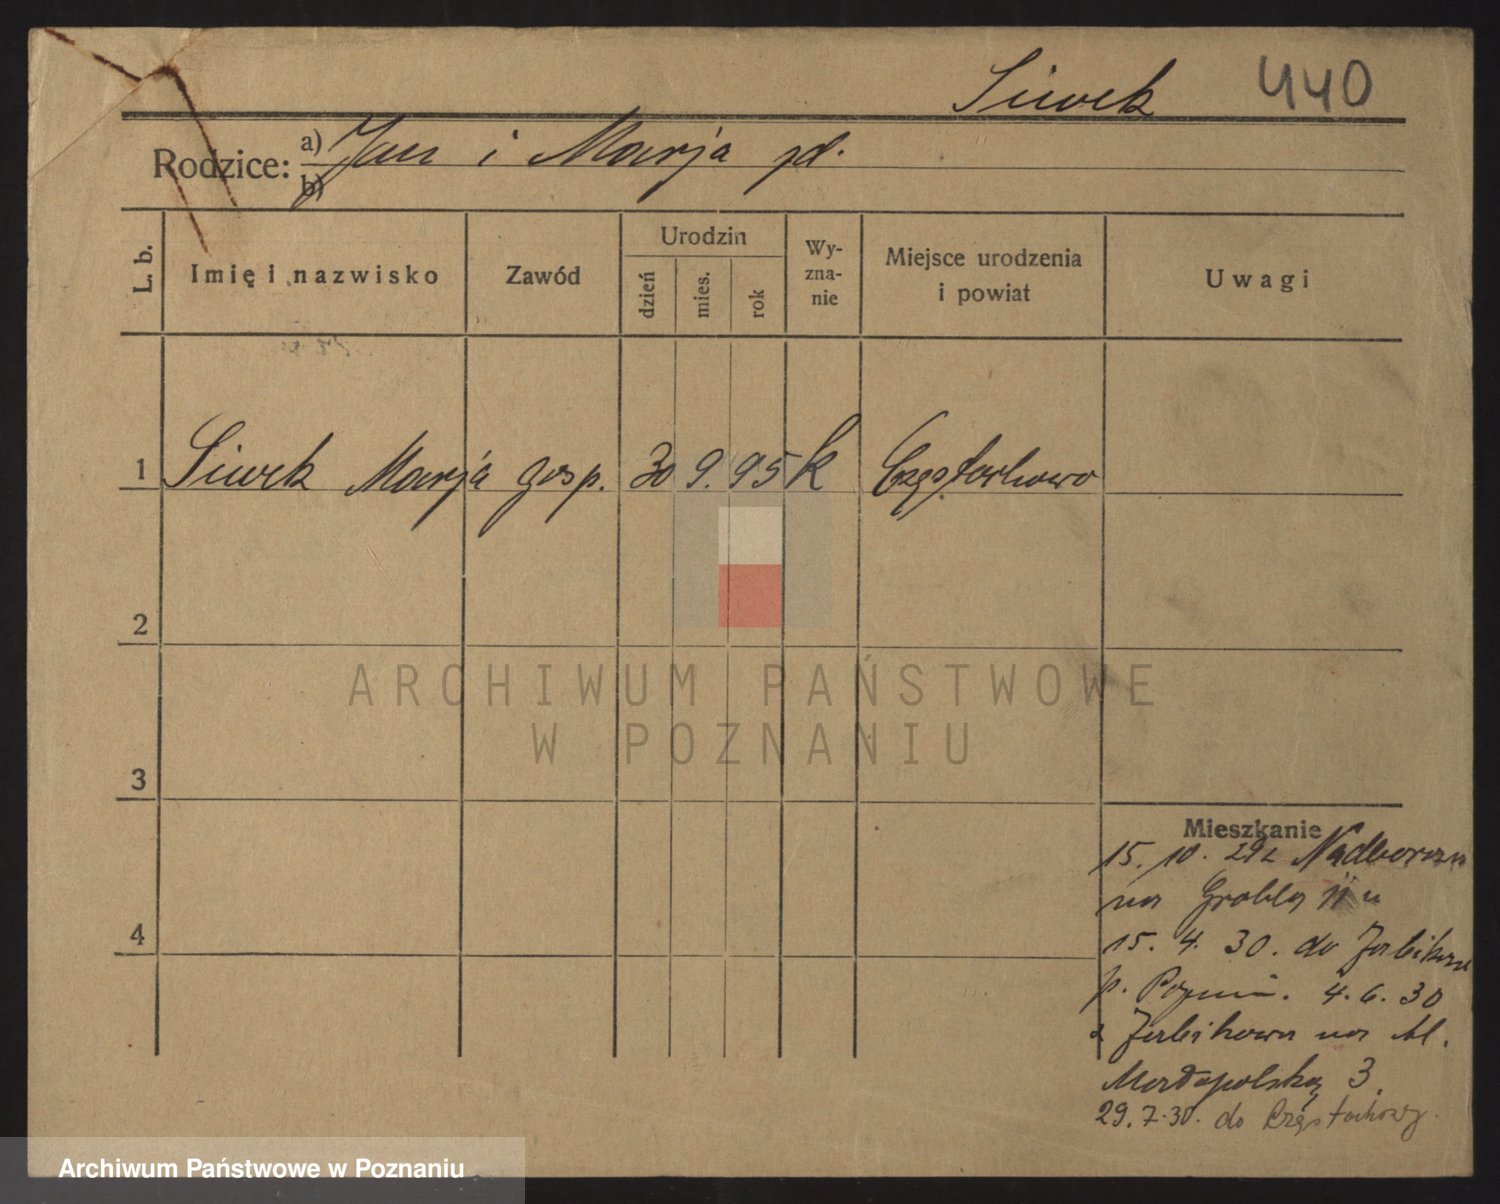 Siwek 440
Rodzice: a) Jan i Marja
b)
L. b. Imię i nazwisko Zawód Urodzin dzień mies. rok Wy-zna-nie Miejsce urodzenia i powiat Uwagi
1 Siwek Marja gosp. 30 9. 95 k Częstochowa
2
ARCHIWUM PAŃSTWOWE
W POZNANIU
3
Mieszkanie
15. 10. 29 z
na Grobla 11
4
15. 4. 30. do
p. 4. 6. 30
z Żabikowa na ul.
Małopolską 3.
29. 7. 30. do Częstochowy.
Archiwum Państwowe w Poznaniu